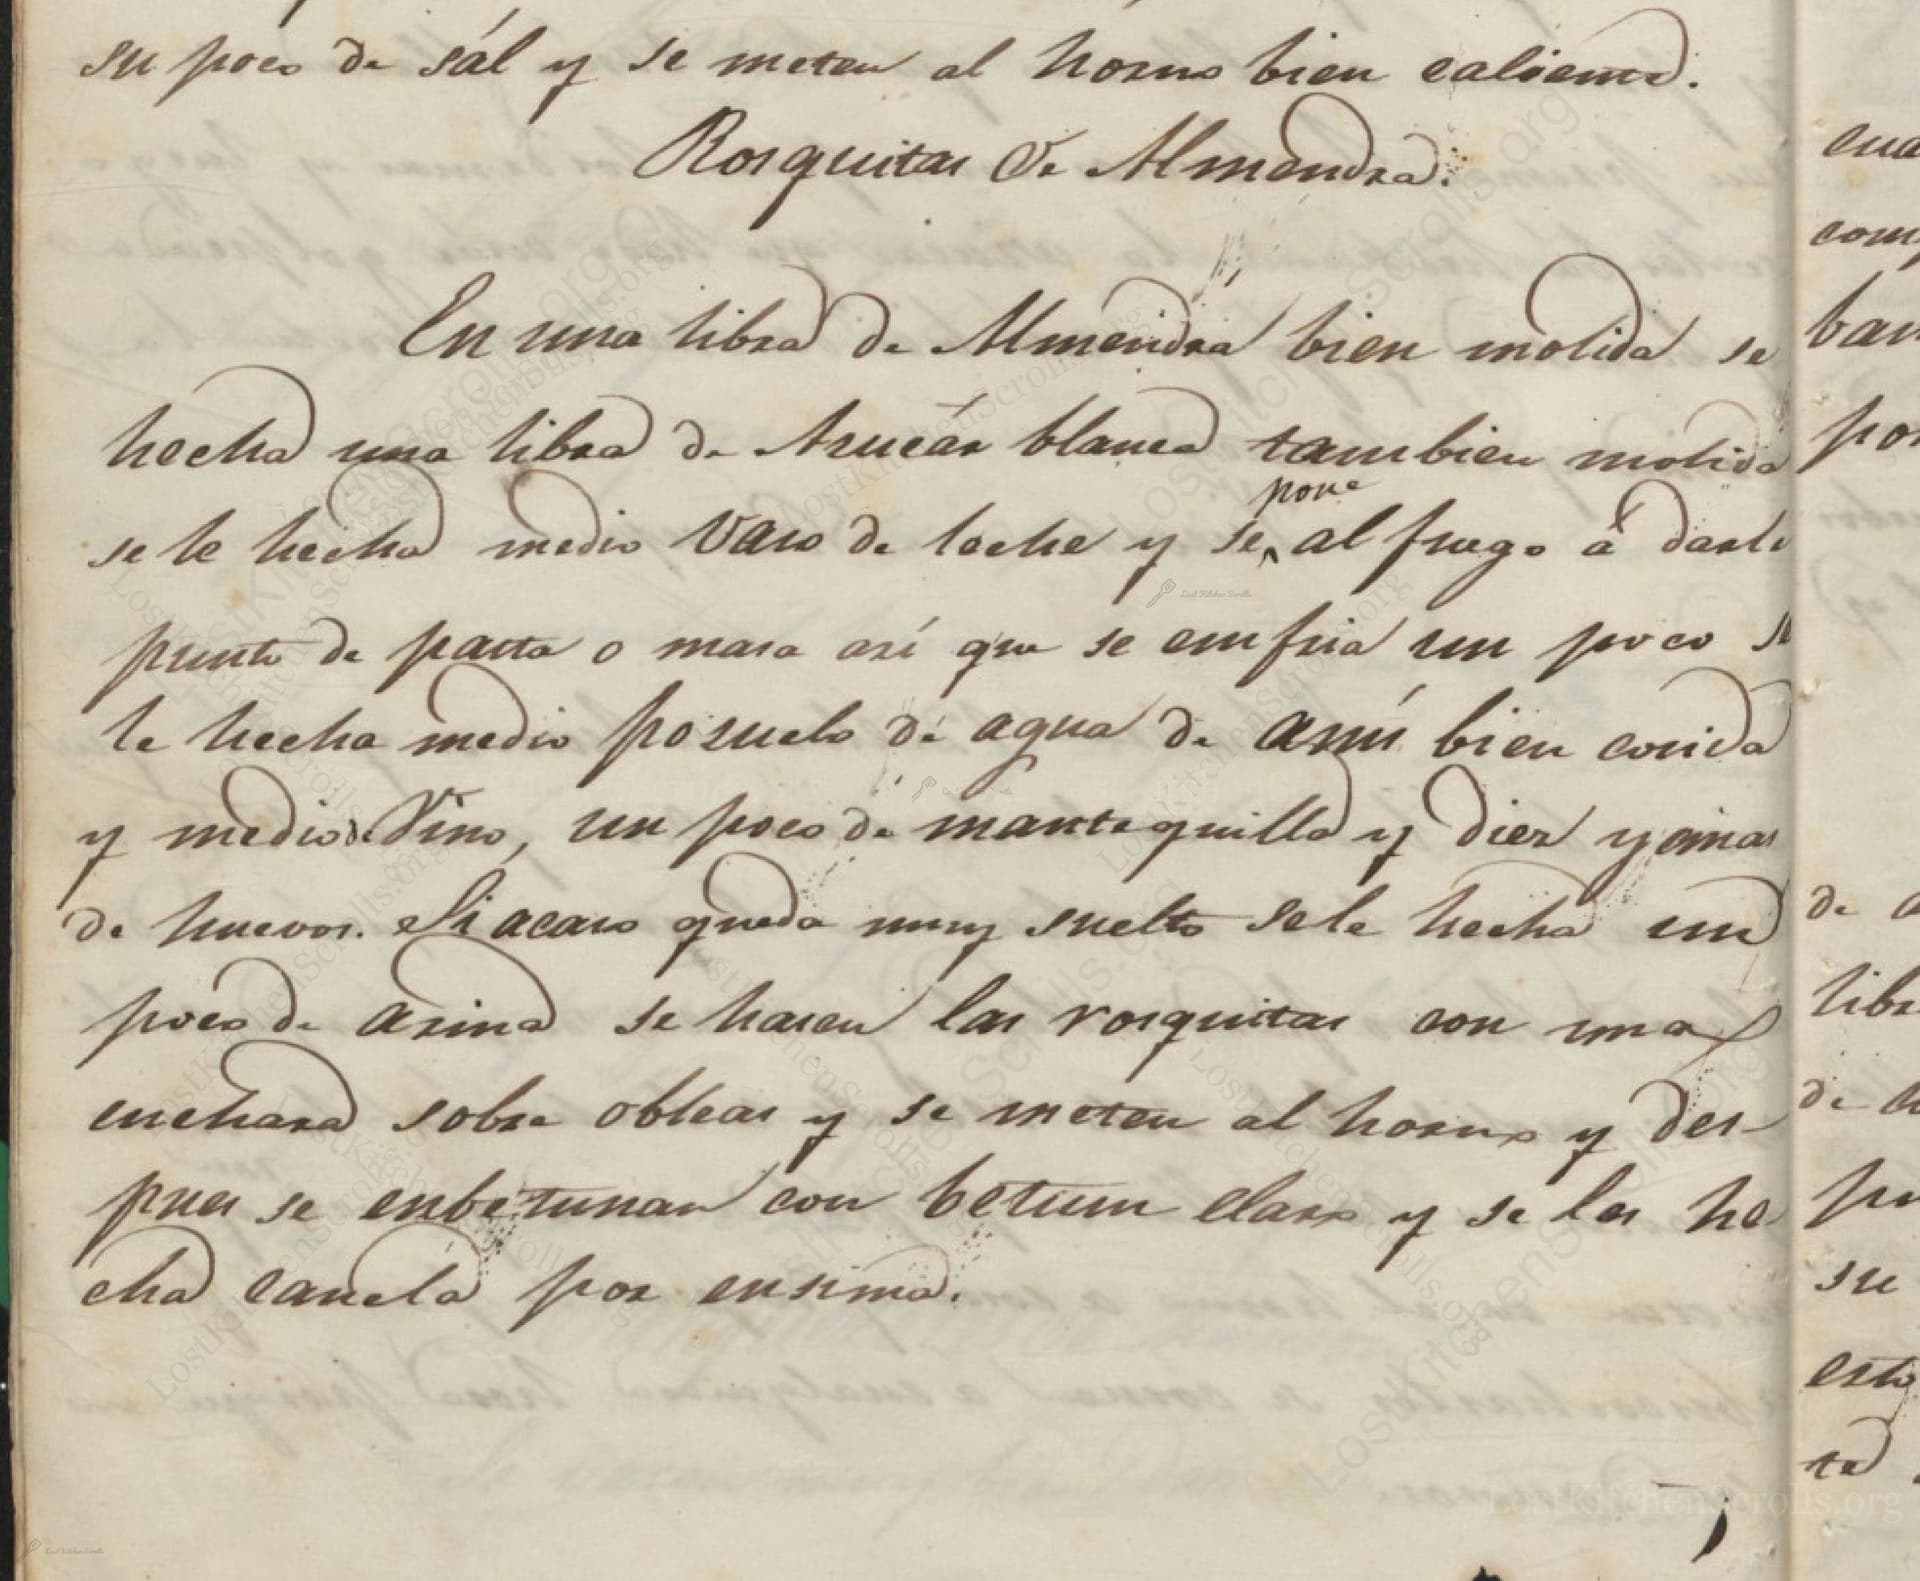 su poco de sál y se meten al horno bien caliente.
Rosquitas de Almendra.
En una libra de Almendra bien molida se
hecha una libra de Azucár blanca tambien molida
pone
se le hecha medio vaso de leche y se al fuego á darle
punto de pasta o masa asi que se emfria un poco se
le hecha medio posuelo de agua de anis bien cosida
y medio de Vino, un poco de mantequilla y dies yemas
de huevos. Si acaso queda muy suelto sele hecha un
poco de arina se hasen las rosquitas con una
cuchara sobre obleas y se meten al horno y des-
pues se enbetunan con betum claro y se les he
cha canela por ensima.
cua
com
ban
por
de a
libr
de a
po
su
esto
ta
LostKitchenScrolls.org